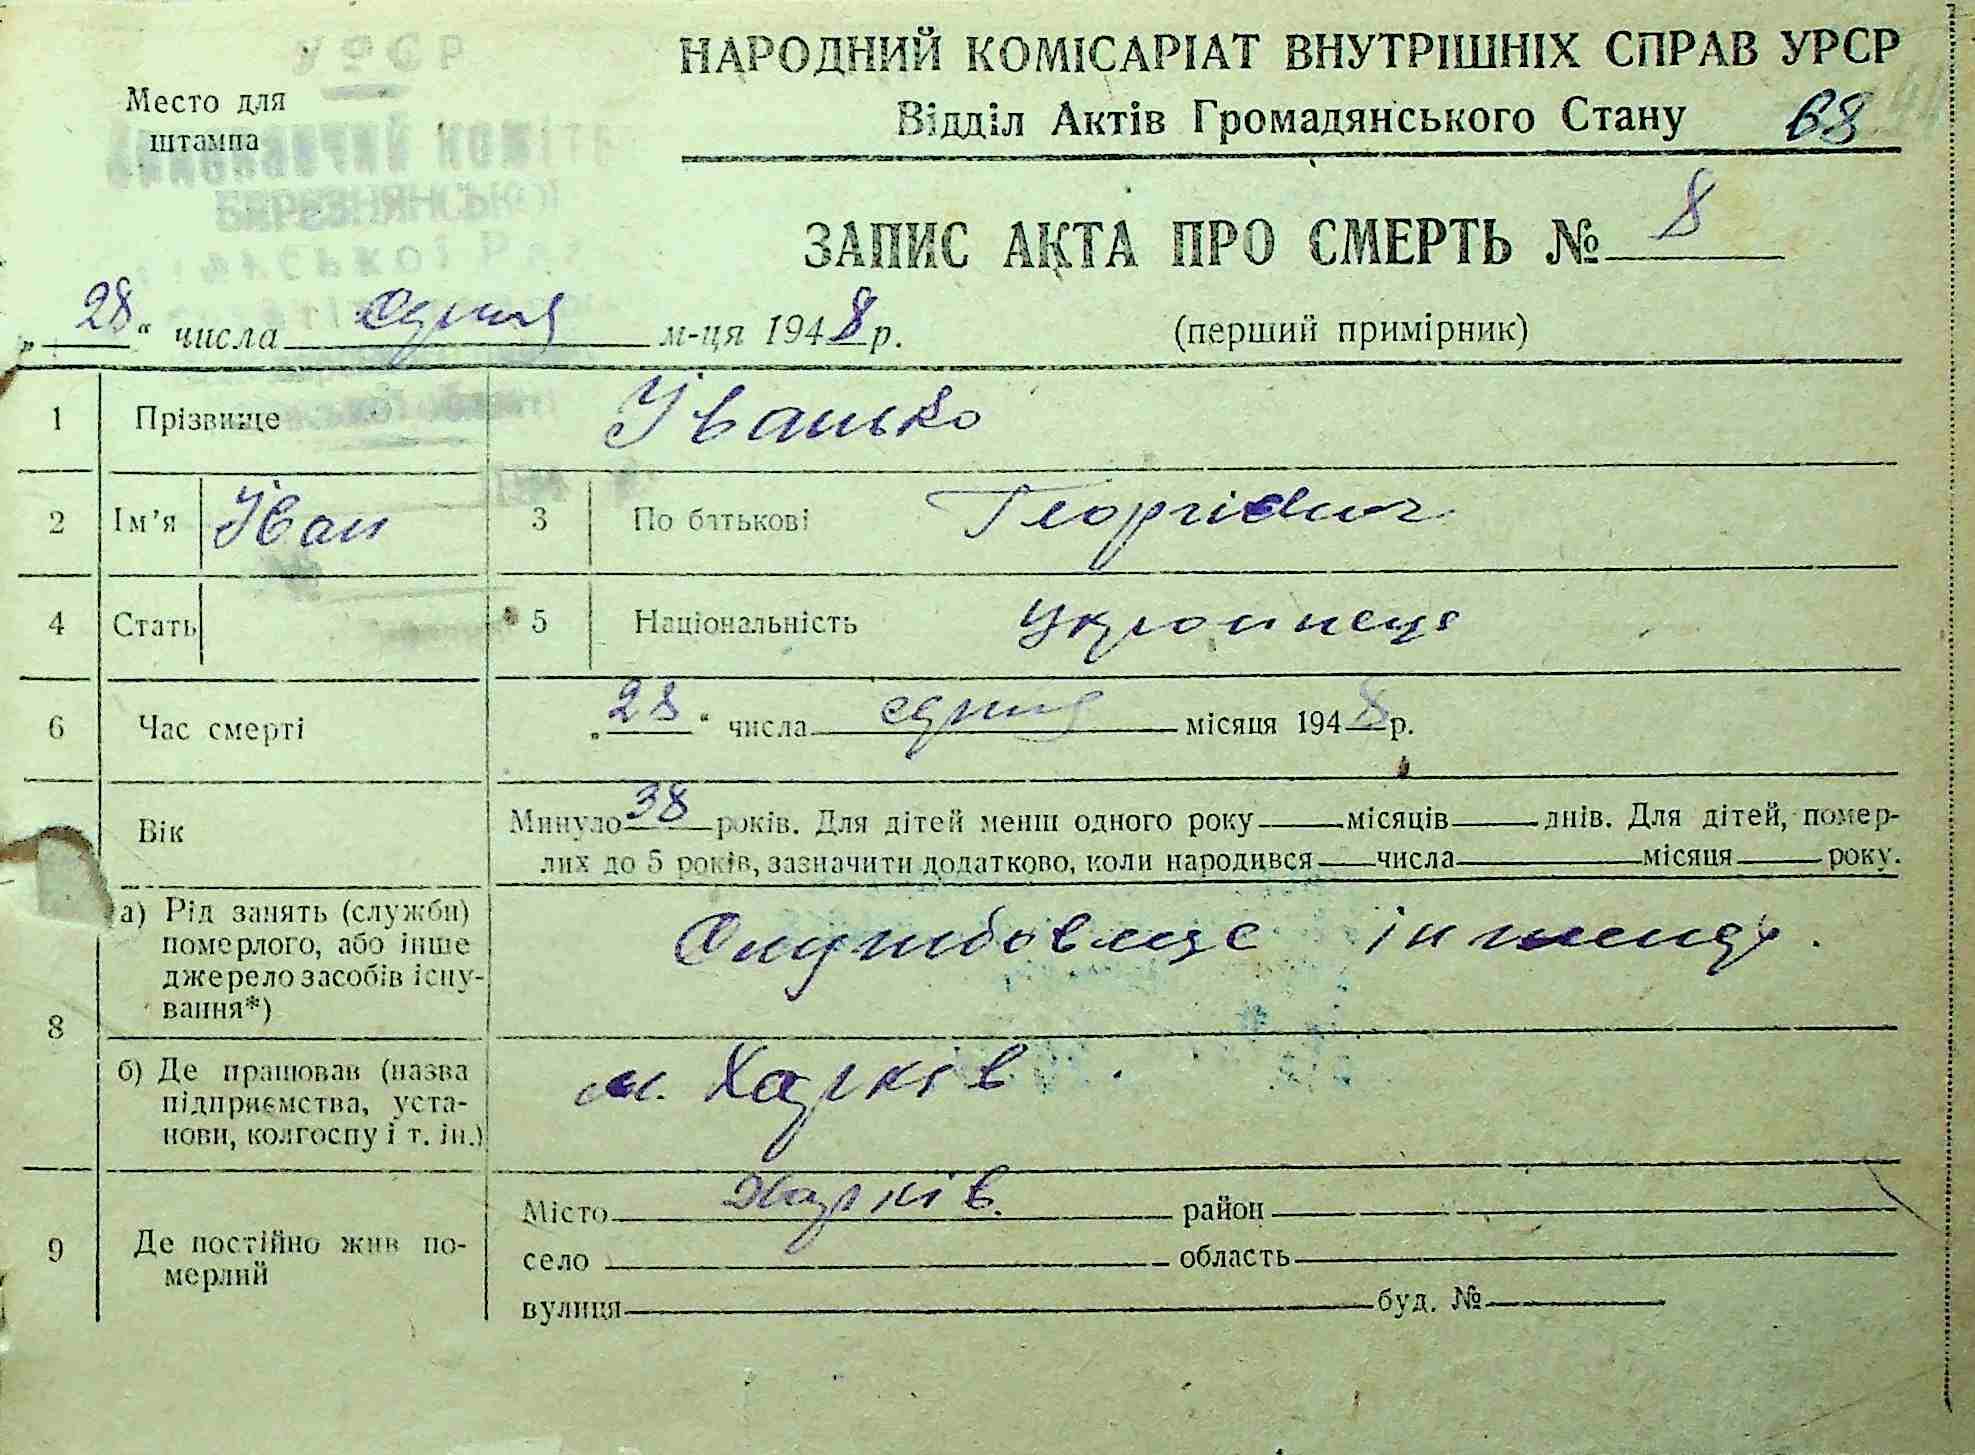 НАРОДНИЙ КОМІСАРІАТ ВНУТРІШНІХ СПРАВ УРСР
Место для
штампа
Відділ Актів Громадянського Стану 68
ЗАПИС АКТА ПРО СМЕРТЬ № 8
„28“ числа січня м-ця 1948 р.
(перший примірник)
1 Прізвище Іванько
2 Ім'я Іван 3 По батькові Георгієвич
4 Стать 5 Національність Українець
6 Час смерті „28“ числа січня місяця 1948 р.
Вік Минуло 38 років. Для дітей менш одного року місяців днів. Для дітей, помер-
лих до 5 років, зазначити додатково, коли народився числа місяця року.
8 а) Рід занять (служби)
померлого, або інше
джерело засобів існу-
вання*)
Службовець інженер.
б) Де працював (назва
підприємства, уста-
нови, колгоспу і т. ін.)
м. Харків
9 Де постійно жив по-
мерлий
Місто Харків. район
село область
вулиця буд. №